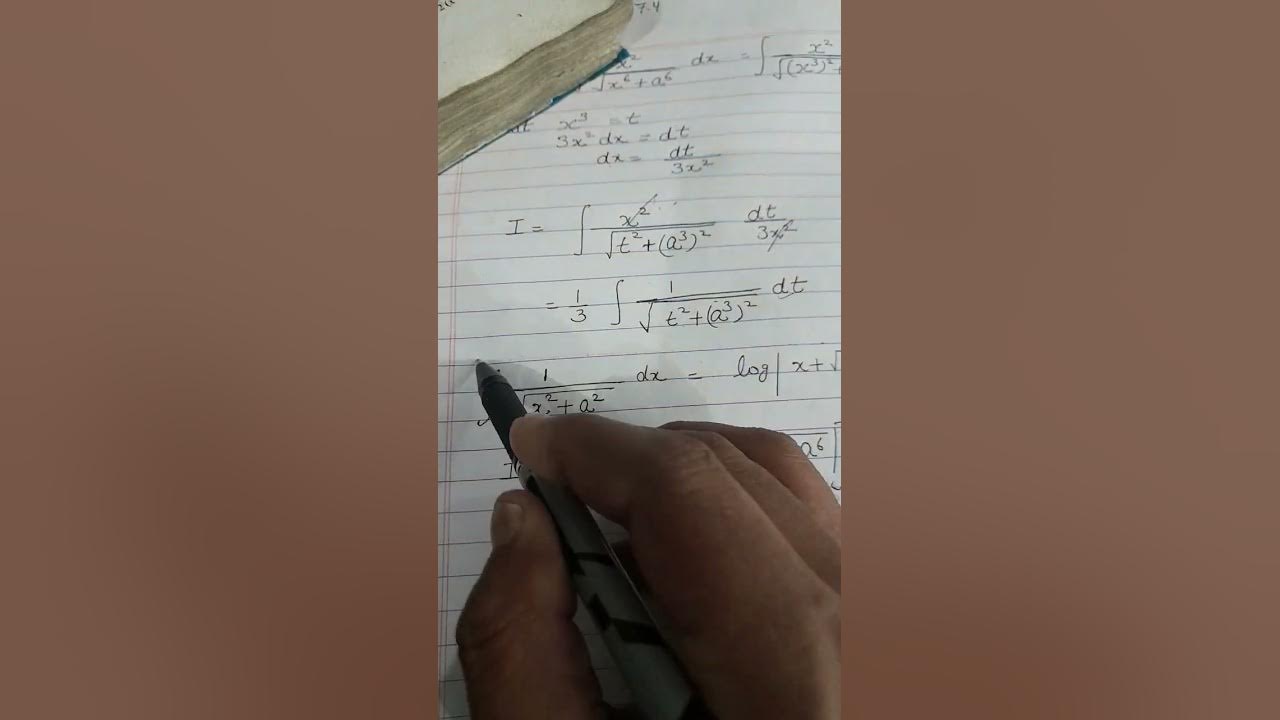 7.4
x²/√(x⁶ + a⁶) dx = ∫ x²/√((x³)²+
x³ = t
3x² dx = dt
dx = dt/3x²
I = ∫ x²/√(t² + (a³)²) dt/3x²
= 1/3 ∫ 1/√(t² + (a³)²) dt
1/√(x² + a²) dx = log| x + √
I a⁶|